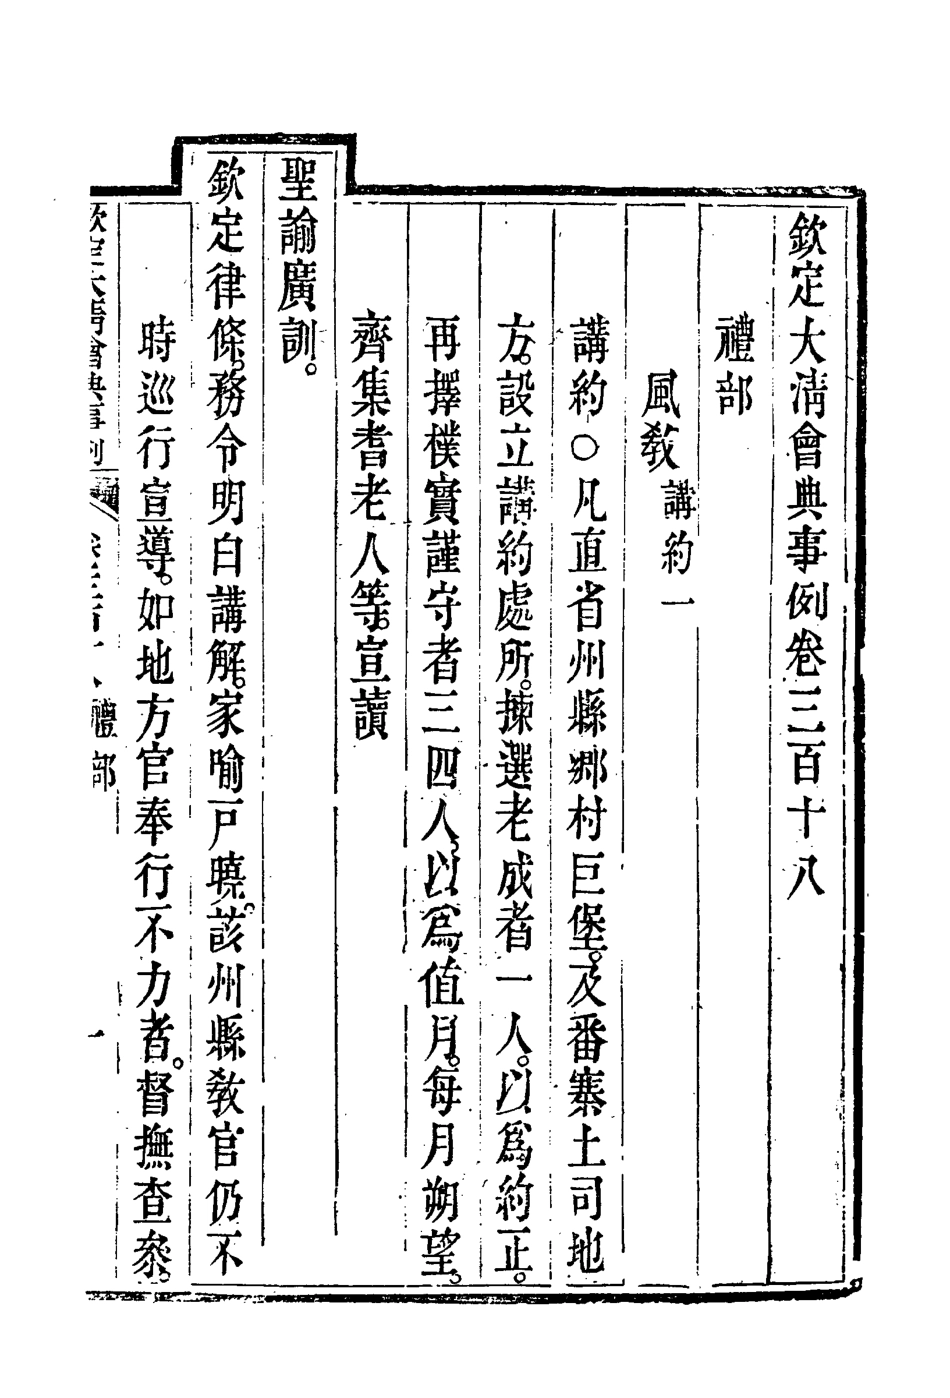 欽定大清會典事例卷三百十八
禮部
風敎 講約一
講約○凡直省州縣鄉村巨堡。及番寨土司地
方。設立講約處所。揀選老成者一人。以爲約正。
再擇樸實謹守者三四人。以爲値月。每月朔望。
齊集耆老人等。宣讀
聖諭廣訓。
欽定律條。務令明白講解。家喻戸曉。該州縣敎官仍不
時巡行宣導。如地方官奉行不力者。督撫查參。
欽定大清會典事例 禮部 一